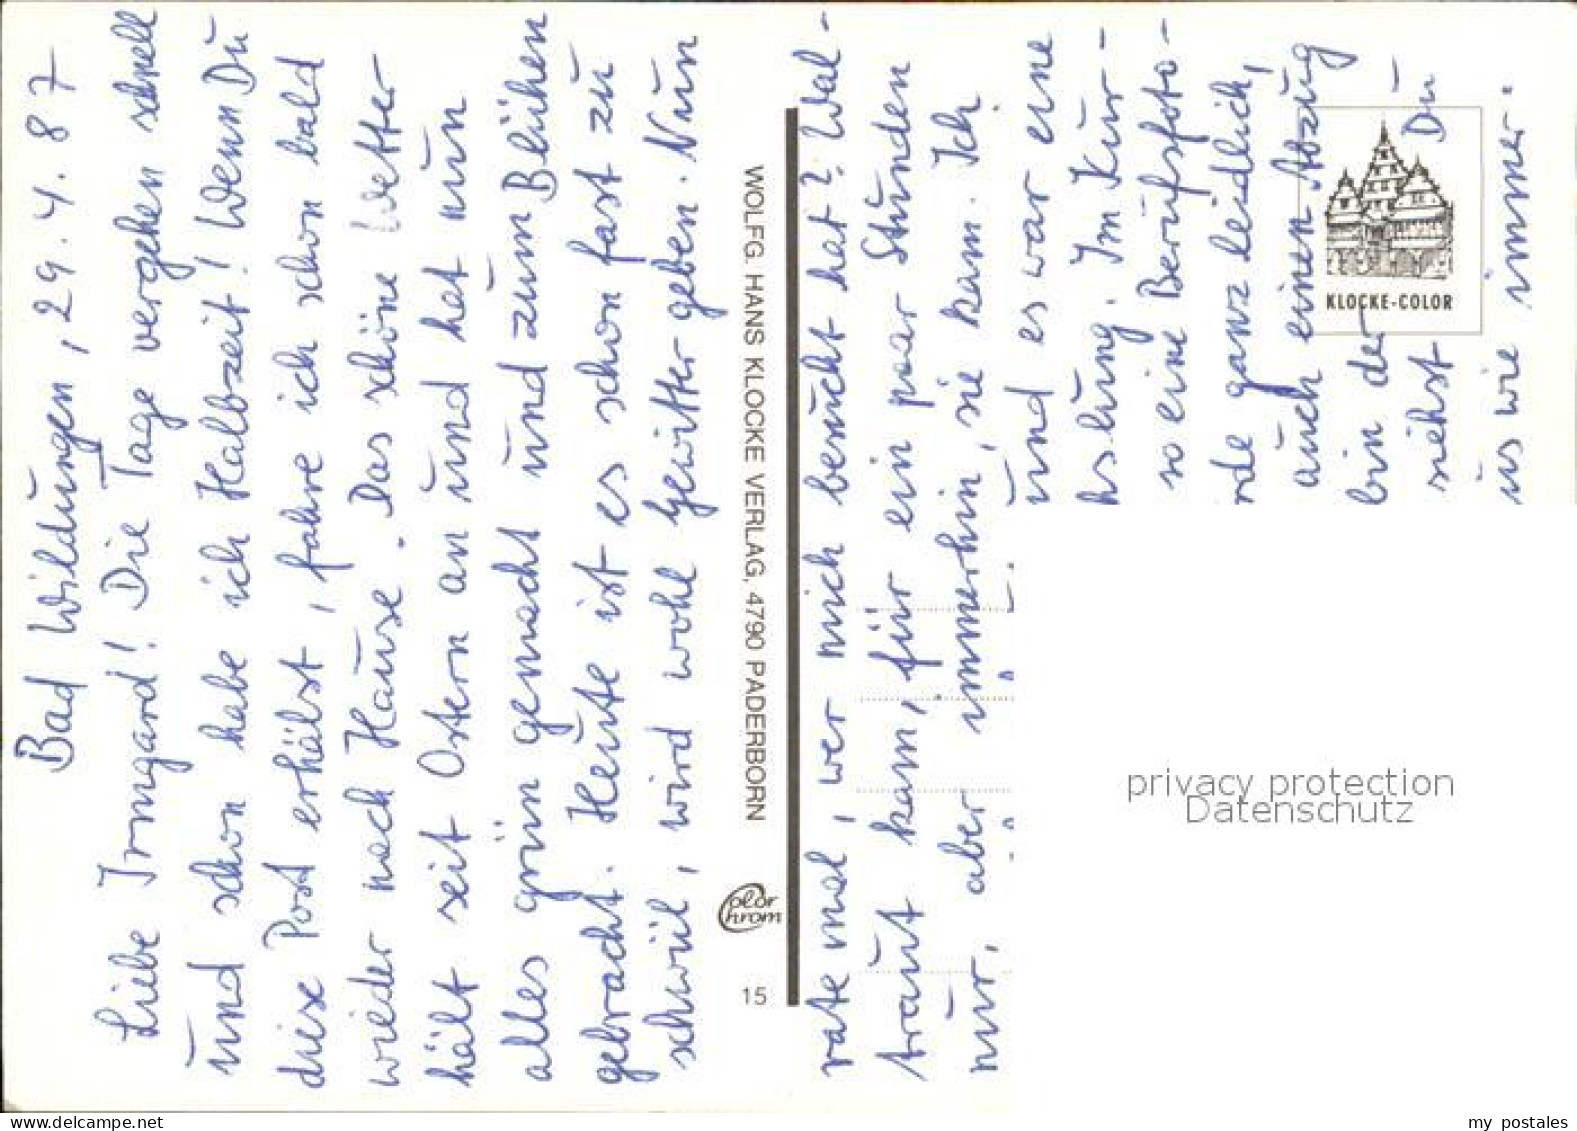 Bad Wildungen, 29.4.87
Liebe Irmgard! Die Tage vergehen schnell
und schon habe ich Halbzeit! Wenn Du
diese Post erhälst, fahre ich schon bald
wieder nach Hause. Das schöne Wetter
hält seit Ostern an und hat nun
alles grün gemacht und zum Blühen
gebracht. Heute ist es schon fast zu
schwül, wird wohl Gewitter geben. Nun
WOLFG. HANS KLOCKE VERLAG, 4790 PADERBORN
Color Chrom
15
rate mal, wer mich besucht hat? Wal-
traut kam, für ein paar Stunden
nur, aber immerhin, sie kam. Ich
und es war eine
hslung. Im Kur-
so eine Berufsfoto-
rde ganz leidlich,
auch einen Abzug
bin der
siehst Du
us wie immer.
KLOCKE-COLOR
privacy protection
Datenschutz
www.delcampe.net
my postales